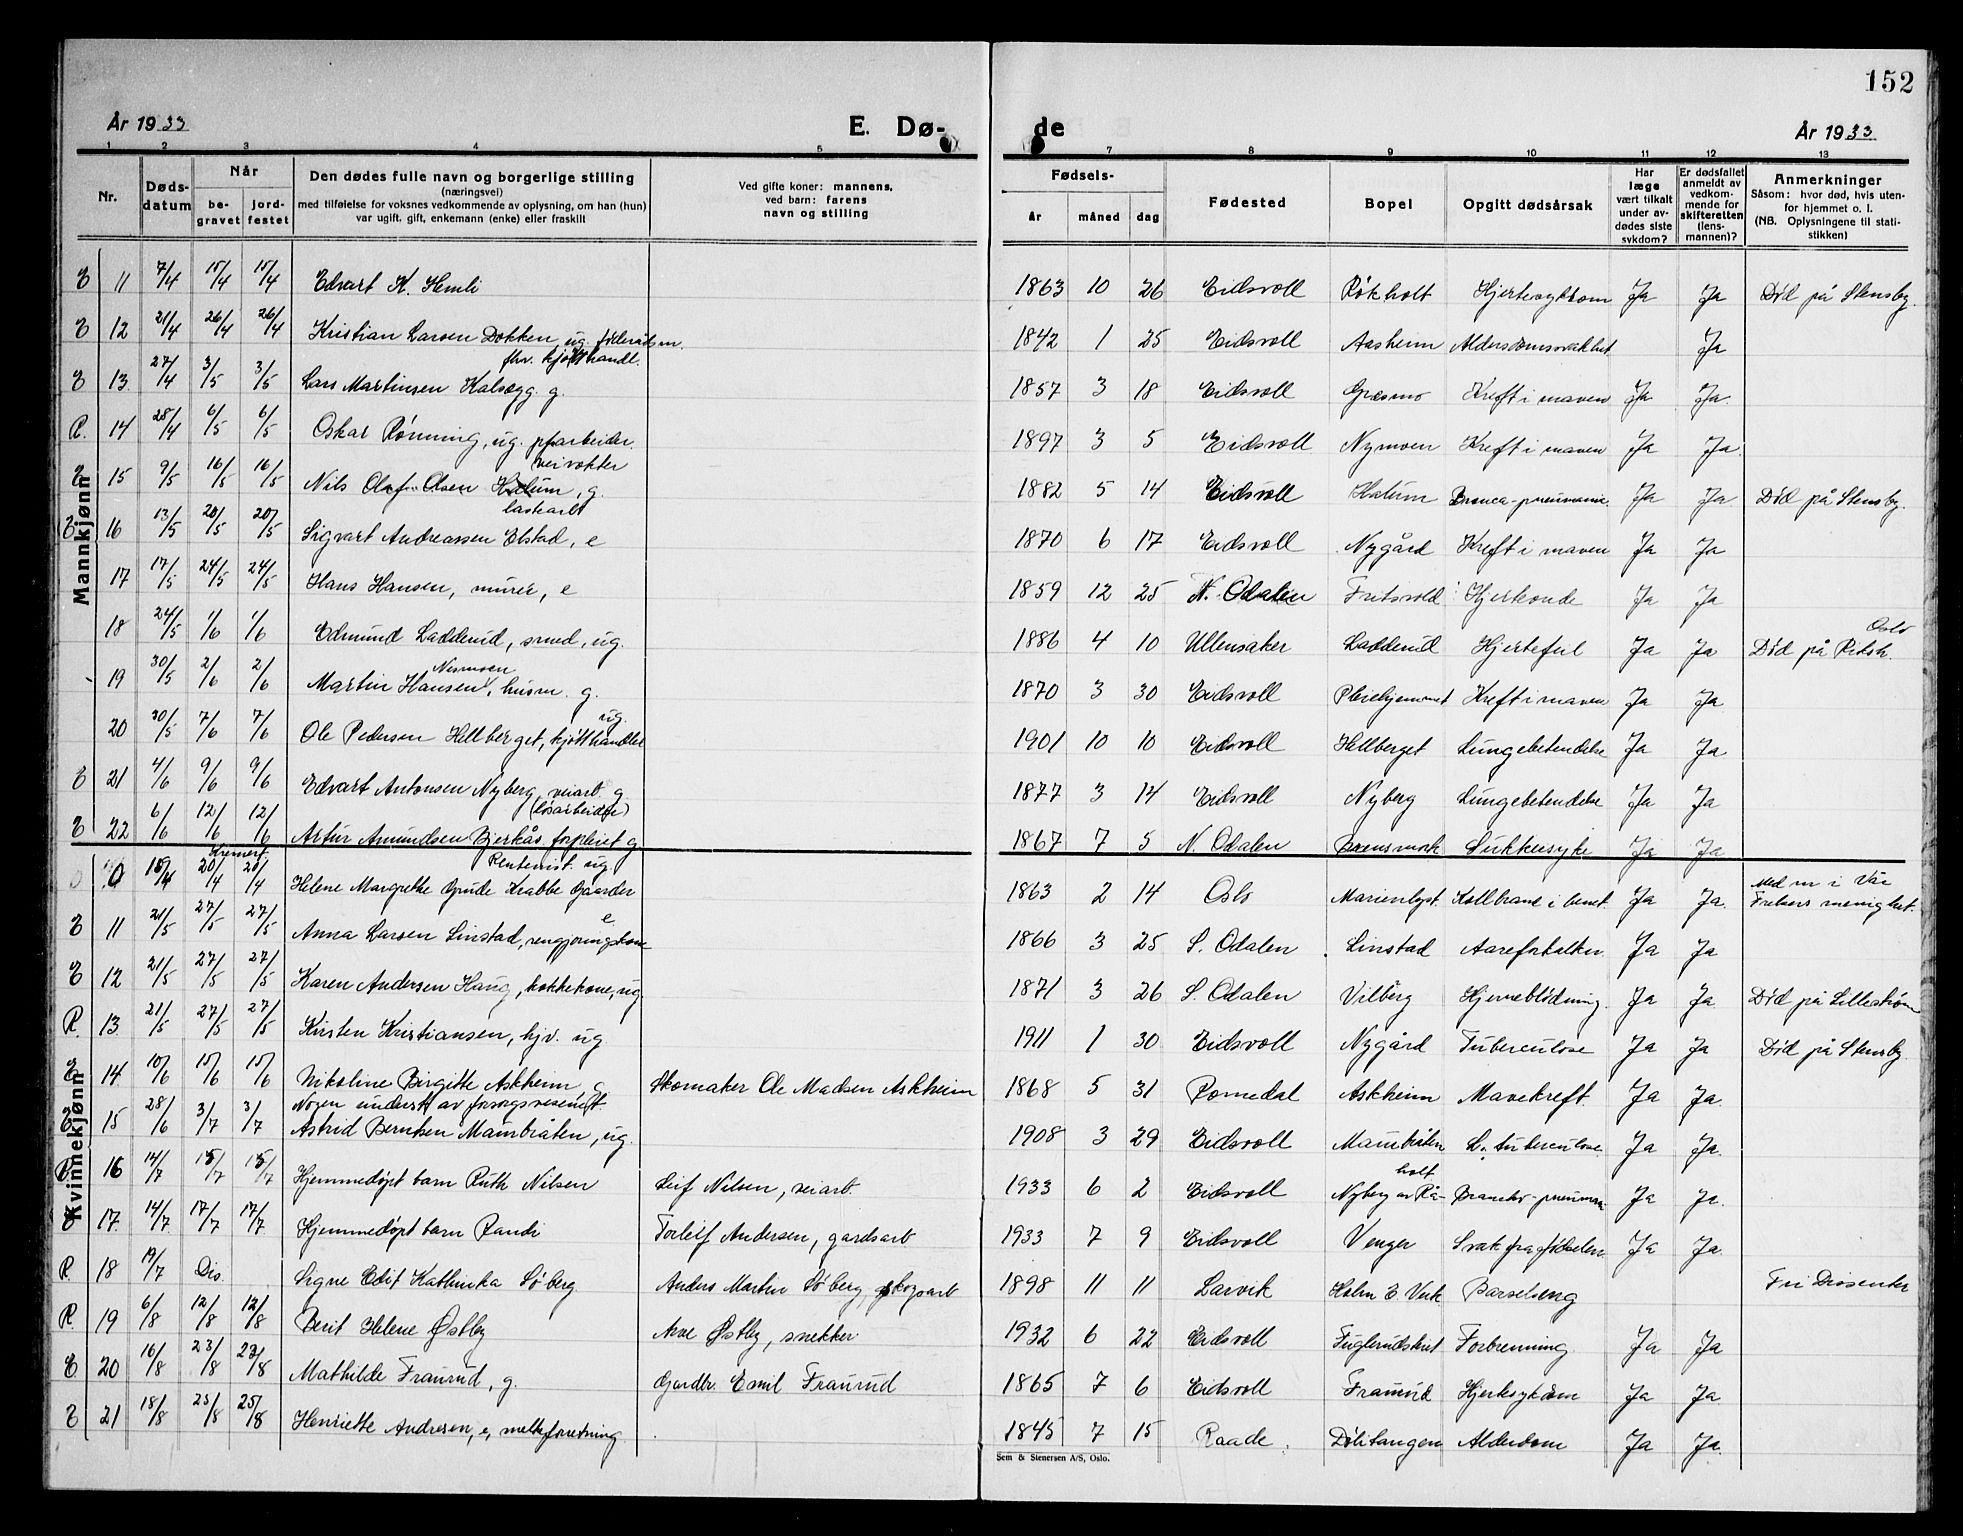 152
År 1933
E. Dø-
de
År 1933
1 2 3 4 5 7 8 9 10 11 12 13
Nr. Døds-datum Når be-gravet jord-festet Den dødes fulle navn og borgerlige stilling (næringsvei) med tilføielse for voksnes vedkommende av oplysning, om han (hun) var ugift, gift, enkemann (enke) eller fraskilt Ved gifte koner: mannens, ved barn: farens navn og stilling Fødsels- år måned dag Fødested Bopel Opgitt dødsårsak Har læge vært tilkalt under av-dødes siste sykdom? Er dødsfallet anmeldt av vedkom-mende for skifteretten (lens-mannen)? Anmerkninger Såsom: hvor død, hvis uten-for hjemmet o. l. (NB. Oplysningene til stati-stikken)
Mannkjønn
E 11 7/4 15/4 15/4 Edvart K. Hemli 1863 10 26 Eidsvoll Røkholt Hjertesykdom Ja Ja Død på Stensby.
E 12 21/4 26/4 26/4 Kristian Larsen Dokken, ug. føderådsm. 1842 1 25 Eidsvoll Aasheim Aldersdomssvakhet Ja
fhv. kjøtthandl.
E 13 27/4 3/5 3/5 Lars Martinsen Kalsegg. g. 1857 3 18 Eidsvoll Græsmo Kreft i maven Ja Ja.
R. 14 28/4 6/5 6/5 Oskar Rønning, ug. arbeider. 1897 3 5 Eidsvoll Nymoen Kreft i maven Ja Ja.
veivokter
E 15 9/5 16/5 16/5 Nils Olaf Olsen Habum, g. 1882 5 14 Eidsvoll Habum Bronca-pneumonie. Ja Ja. Død på Stensby.
E. 16 13/5 20/5 20/5 Sigvart Andreassen Elstad, e 1870 6 17 Eidsvoll Nygård Kreft i maven Ja Ja
17 17/5 24/5 24/5 Hans Hansen, murer, e 1859 12 25 N. Odalen Fritsvold Hjerteonde Ja Ja
18 24/5 1/6 1/6 Edmund Ladderud, smed, ug. 1886 4 10 Ullensaker Ladderud Hjertefeil Ja Ja Død på Riksh. Oslo
Nesmoen
19 30/5 2/6 2/6 Martin Hansen, husm. g. 1870 3 30 Eidsvoll Pleiehjemmet Kreft i maven Ja Ja.
ug.
20 30/5 7/6 7/6 Ole Pedersen Hellberget, kjøtthandler 1901 10 10 Eidsvoll Hellberget Lungebetendelse Ja Ja.
E 21 4/6 9/6 9/6 Edvart Antonsen Nyberg, veiarb. g 1877 3 14 Eidsvoll Nyberg Lungebetendelse Ja Ja
(løsarbeider)
E 22 6/6 12/6 12/6 Artur Amundsen Bjerkås forpleiet g 1867 7 5 N. Odalen Brensmork Sukkersyke Ja Ja
Kvinnekjønn
Kremert. Rentenist. ug
10 15/4 20/4 20/4 Helene Margrethe Grude Krabbe Gaarder 1863 2 14 Oslo Marienlyst. Kollbrann i benet. Ja Ja. Med m i Vår Frelsers menighet.
E 11 21/5 27/5 27/5 Anna Larsen Linstad, rengjøringskone e 1866 3 25 S. Odalen Linstad Aareforkalkn Ja Ja
E 12 21/5 27/5 27/5 Karen Andersen Haug, kokkekone, ug. 1871 3 26 S. Odalen Vilberg Hjerneblødning. Ja Ja. Død på Lillestrøm
R. 13 21/5 27/5 27/5 Kirsten Kristiansen, hjv. ug 1911 1 30 Eidsvoll Nygård Tuberculose Ja Ja Død på Stensby.
E 14 10/6 15/6 15/6 Nikoline Birgitte Askheim g Skomaker Ole Madsen Askheim 1868 5 31 Romedal Askheim Mavekreft. Ja Ja.
Nogen underst. av forsorgsvesenet.
E 15 28/6 3/7 3/7 Astrid Berntsen Maurbråten, ug. 1908 3 29 Eidsvoll Maurbråten L. tuberculose Ja Ja.
16 14/7 15/7 15/7 Hjemmedøpt barn Ruth Nilsen Leif Nilsen, veiarb. 1933 6 2 Eidsvoll Nyberg av Rå-holt Broncho-pneumoni Ja Ja.
E 17. 14/7 17/7 17/7 Hjemmedøpt barn Randi Torleif Andersen, gardsarb 1933 7 9 Eidsvoll Venger Svak fra fødselen Ja Ja.
R. 18 19/7 Dis. Signe Edit Kathinka Søberg Anders Martin Søberg, skogsarb 1898 11 11 Larvik Holm E. Verk Barselseng Fri Dissenter
R. 19 6/8 12/8 12/8 Berit Helene Østby Arve Østby, snekker 1932 6 22 Eidsvoll Fuglerudskvet Forbrenning Ja Ja
E 20 16/8 23/8 23/8 Mathilde Fraurud, g. Gardbr. Emil Fraurud 1865 7 6 Eidsvoll Fraurud Hjertesykdom Ja Ja
E 21 18/8 25/8 25/8 Henriette Andresen, e, melkeforretning 1845 7 15 Raade. Dølitangen Alderdom Ja Ja.
Sem & Stenersen A/S, Oslo.